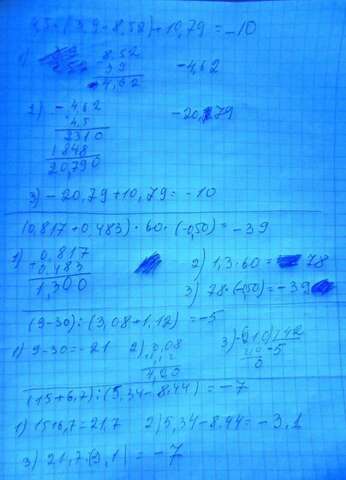 4,5 · (3,9 - 8,52) + 10,79 = -10
1) 8,52
3,9
4,62
-4,62
2) -4,62
4,5
2310
1848
20,790
-20,79
3) -20,79 + 10,79 = -10
(0,817 + 0,483) · 60 · (-0,50) = -39
1) 0,817
+ 0,483
1,300
2) 1,3 · 60 = 78
3) 78 · (-0,50) = -39
(9-30) : (3,08 + 1,12) = -5
1) 9-30 = -21
2) 3,08
1,12
4,20
3) -210 / 42
210 -5
0
(15+6,7) : (5,34 - 8,44) = -7
1) 15+6,7 = 21,7
2) 5,34 - 8,44 = -3,1
3) 21,7 : (3,1) = -7